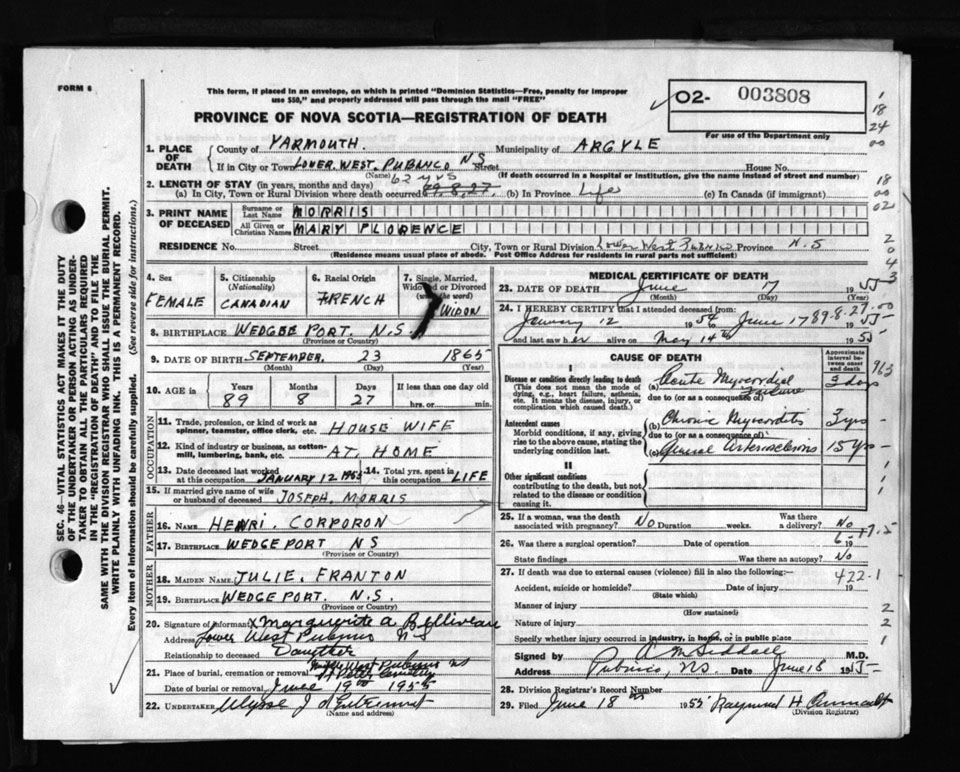 FORM 6
This form, if placed in an envelope, on which is printed "Dominion Statistics—Free, penalty for improper
use $50," and properly addressed will pass through the mail "FREE"
PROVINCE OF NOVA SCOTIA—REGISTRATION OF DEATH
O2- 003808
For use of the Department only
1. PLACE OF DEATH
County of YARMOUTH. Municipality of ARGYLE
If in City or Town LOWER. WEST. PUBNICO NS Street House No.
(Name) (If death occurred in a hospital or institution, give the name instead of street and number)
2. LENGTH OF STAY (in years, months and days) 62 yrs
(a) In City, Town or Rural Division where death occurred 89.8.27. (b) In Province Life (c) In Canada (if immigrant)
3. PRINT NAME OF DECEASED
Surname or Last Name MORRIS
All Given or Christian Names MARY FLORENCE
RESIDENCE No. Street City, Town or Rural Division Lower West Pubnico Province N.S
(Residence means usual place of abode. Post Office Address for residents in rural parts not sufficient)
4. Sex FEMALE
5. Citizenship (Nationality) CANADIAN
6. Racial Origin FRENCH
7. Single, Married, Widowed or Divorced (write the word) WIDOW
8. BIRTHPLACE WEDGEE PORT. N.S.
(Province or Country)
9. DATE OF BIRTH SEPTEMBER. 23 1865
(Month) (Day) (Year)
10. AGE in Years 89 Months 8 Days 27 If less than one day old hrs. or min.
OCCUPATION
11. Trade, profession, or kind of work as spinner, teamster, office clerk, etc. HOUSE WIFE
12. Kind of industry or business, as cotton-mill, lumbering, bank, etc. AT. HOME
13. Date deceased last worked at this occupation JANUARY 12 1955
14. Total yrs. spent in this occupation LIFE
15. If married give name of wife or husband of deceased JOSEPH. MORRIS
FATHER
16. NAME HENRI. CORPORON
17. BIRTHPLACE WEDGEPORT NS
(Province or Country)
MOTHER
18. MAIDEN NAME JULIE. FRANTON
19. BIRTHPLACE WEDGEPORT. N.S.
(Province or Country)
20. Signature of informant X Marguerite A Belliveau
Address Lower West Pubnico NS
Relationship to deceased Daughter
21. Place of burial, cremation or removal West Pubnico NS
St Peter Cemetery
Date of burial or removal June 19 1955
22. UNDERTAKER Ulysse J d'Entremont
(Name and address)
MEDICAL CERTIFICATE OF DEATH
23. DATE OF DEATH June 17 1955
(Month) (Day) (Year)
24. I HEREBY CERTIFY that I attended deceased from:
January 12 1954 to June 17 1955
89-8-27
and last saw her alive on May 14th 1955
CAUSE OF DEATH
Approximate interval between onset and death
I
Disease or condition directly leading to death
(This does not mean the mode of dying, e.g., heart failure, asthenia, etc. It means the disease, injury, or complication which caused death.)
(a) Acute Myocardial Failure 3 days
due to (or as a consequence of)
Antecedent causes
Morbid conditions, if any, giving rise to the above cause, stating the underlying condition last.
(b) Chronic Myocarditis 3 yrs
due to (or as a consequence of)
(c) General Arteriosclerosis 15 yrs
II
Other significant conditions
contributing to the death, but not related to the disease or condition causing it.
25. If a woman, was the death associated with pregnancy? No Duration weeks. Was there a delivery? No
26. Was there a surgical operation? Date of operation 19
State findings Was there an autopsy? No
27. If death was due to external causes (violence) fill in also the following:—
422-1
Accident, suicide or homicide? Date of injury 19
(State which)
Manner of injury
(How sustained)
Nature of injury
Specify whether injury occurred in industry, in home, or in public place
Signed by M.D.
Address Pubnico, NS Date June 18 1955
28. Division Registrar's Record Number
29. Filed June 18th 1955 Raymond H
(Division Registrar)
SEC. 46—VITAL STATISTICS ACT MAKES IT THE DUTY
OF THE UNDERTAKER OR PERSON ACTING AS UNDER-
TAKER TO OBTAIN ALL THE PARTICULARS REQUIRED
IN THE "REGISTRATION OF DEATH" AND TO FILE THE
SAME WITH THE DIVISION REGISTRAR WHO SHALL ISSUE THE BURIAL PERMIT.
WRITE PLAINLY WITH UNFADING INK. THIS IS A PERMANENT RECORD.
Every item of information should be carefully supplied. (See reverse side for instructions.)